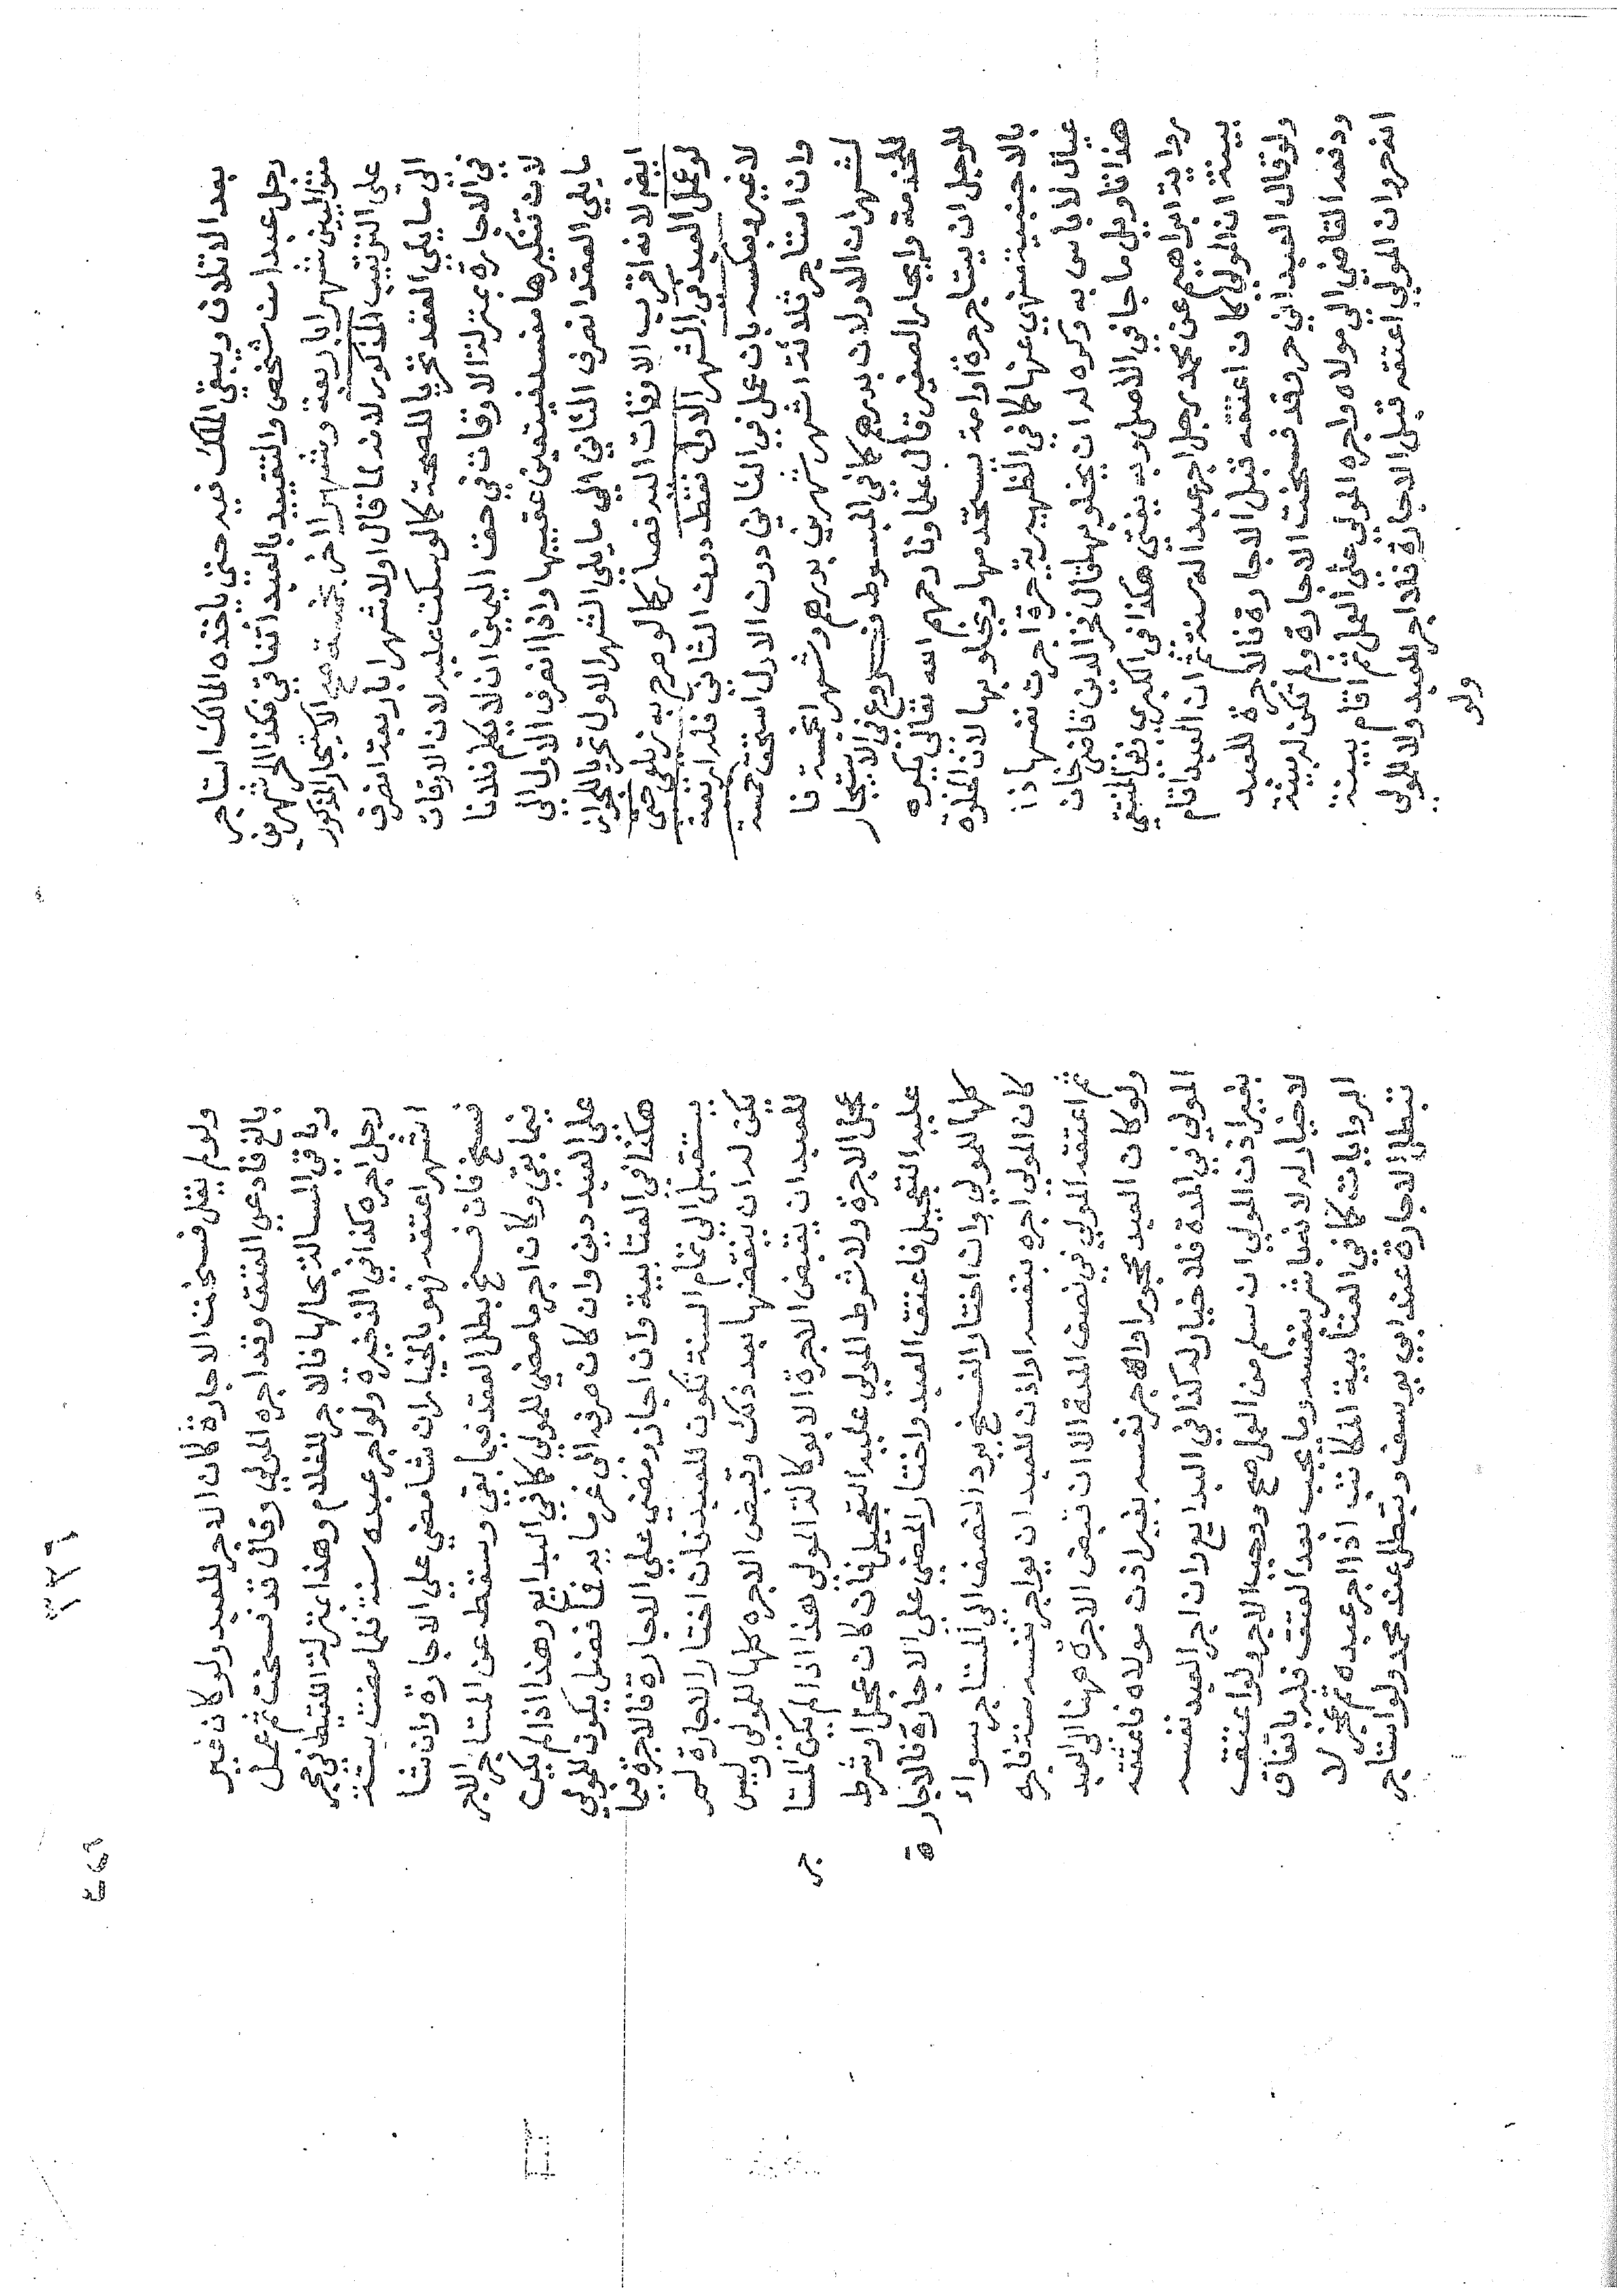 بعد الاتلاف ويبقي الملك فيه حتى ياخذه المالك استاجر
رجل عبدا من شخص والتقييد بالعبد اتفاقي فكذا الحر شهرين
متواليين شهرا باربعة وشهرا اخر بخمسة صح الاستيجار المذكور
على الترتيب المذكور لانه لما قال اولا شهرا باربعة انصرف
الى ما يلي العقد تحريا للصحة كما لو سكت عليه لان الاوقات
في الاجارة بمنزلة الاوقات في حق اليمين ان لا يكلم فلانا
لان تنكيرها مفسد فيتعين عقيبها واذا انصرف الاول الى
ما يلي العقد انصرف الثاني الي ما يلي الشهر الاول تحريا للجواز
ايضا لانه اقرب الاوقات اليه فصار كما لو صرح به زيلعي حتى
لو عمل العبد في الشهر الاول فقط دون الثاني فله اربعة
لا غير وبعكسه بان عمل في الثاني دون الاول استحق خمسة
وان استاجر ثلاثة اشهر شهرين بدرهم وشهرا بخمسة فا
لشهران الاولان بدرهم كافي المبسوط فــروع في الاستيجار
للخدمة وايجار الصغير قال علماونا رحمهم الله تعالى يكره
للرجل ان يستاجر حرة او امة يستخدمها ويخلو بها لان الخلوة
بالاجنبية منهي عنها كما في الظهيرية حرة اجرت نفسها ذا
عيال لا باس به وكره له ان يخلو بها قال فخر الدين قاضي خان
هذا تاويل ما جا في الاصل وبه يفتي هكذا في الكبري نقل المنتقي
رواية ابراهيم عن محمد رجل اجر عبدا له سنة ثم ان العبد اقام
بينة ان المولي كان اعتقه قبل الاجارة فالاجرة للعبد
ولو قال العبد اني حر وقد فسخت الاجارة ولم تكن له بينة
ودفعه القاضي الي مولاه واجبره المولي على العمل ثم اقام بينة
انه حر وان المولي اعتقه قبل الاجارة فلا اجر للعبد ولا للمولى
ولو
ولو لم يقل فسخت الاجارة كان الاجر للعبد ولو كان غير
بالغ فادعى العتق وقد اجره المولي وقال قد فسخت ثم عمل
وباقي المسالة بحالها فالاجر للغلام وهذا بمنزلة اللقيط في حجر
رجل اجره كذا في الذخيرة ولو اجر عبده سنة فلما مضت ستة
اشهر اعتقه فهو بالخيار ان شا مضي علي الاجارة وان شا
فسخ فان فسخ بطل العقد فيما بقي وسقط عن المستاجر الاجر
فيما بقي وكان اجر ما مضي للمولي كما في البدايع وهذا اذا لم يكن
علي العبد دين وان كان صرفه الى غرمايه فما فضل يكون للمولي
هكذا في العتابية وان اجاز ومضي علي الاجارة فالاجرة فيما
يستقبل الي تمام السنة تكون للعبد فان اختار الاجارة لم
يكن له ان ينقضها بعد ذلك وقبض الاجره كلها للمولي وليس
للعبد ان يقبض الاجرة الا بوكالة المولي هذا اذا لم يكن المستا
جر
عجل الاجرة ولا شرط المولي عليه التعجيل فان كان عجل او شرط
عليه التعجيل فاعتق العبد واختار المضي علي الاجارة فالاجارة
كلها للمولي وان اختار الفسخ يرد النصف الي المستاجر سواء
كان المولي اجره بنفسه او اذن للعبد ان يواجر نفسه سنة فاجره
ثم اعتقه المولي في نصف المدة الا ان قبض الاجرة هنا الي العبد
ولو كان العبد محجورا واجر نفسه بغير اذن مولاه فاعتقه
المولي في المدة فلا خيار له كذا في البدايع وان اجر العبد نفسه
بغير اذن المولي ان سلم من العمل صح ووجب الاجر ولو اعتق
لا خيار له لانه باشر بنفسه وما يجب بعد العتق فله باتفاق
الروايات كما في العتابية المكاتب اذا اجر عبده ثم عجز لا
تبطل الاجارة عند ابي يوسف وتبطل عند محمد ولو استاجر